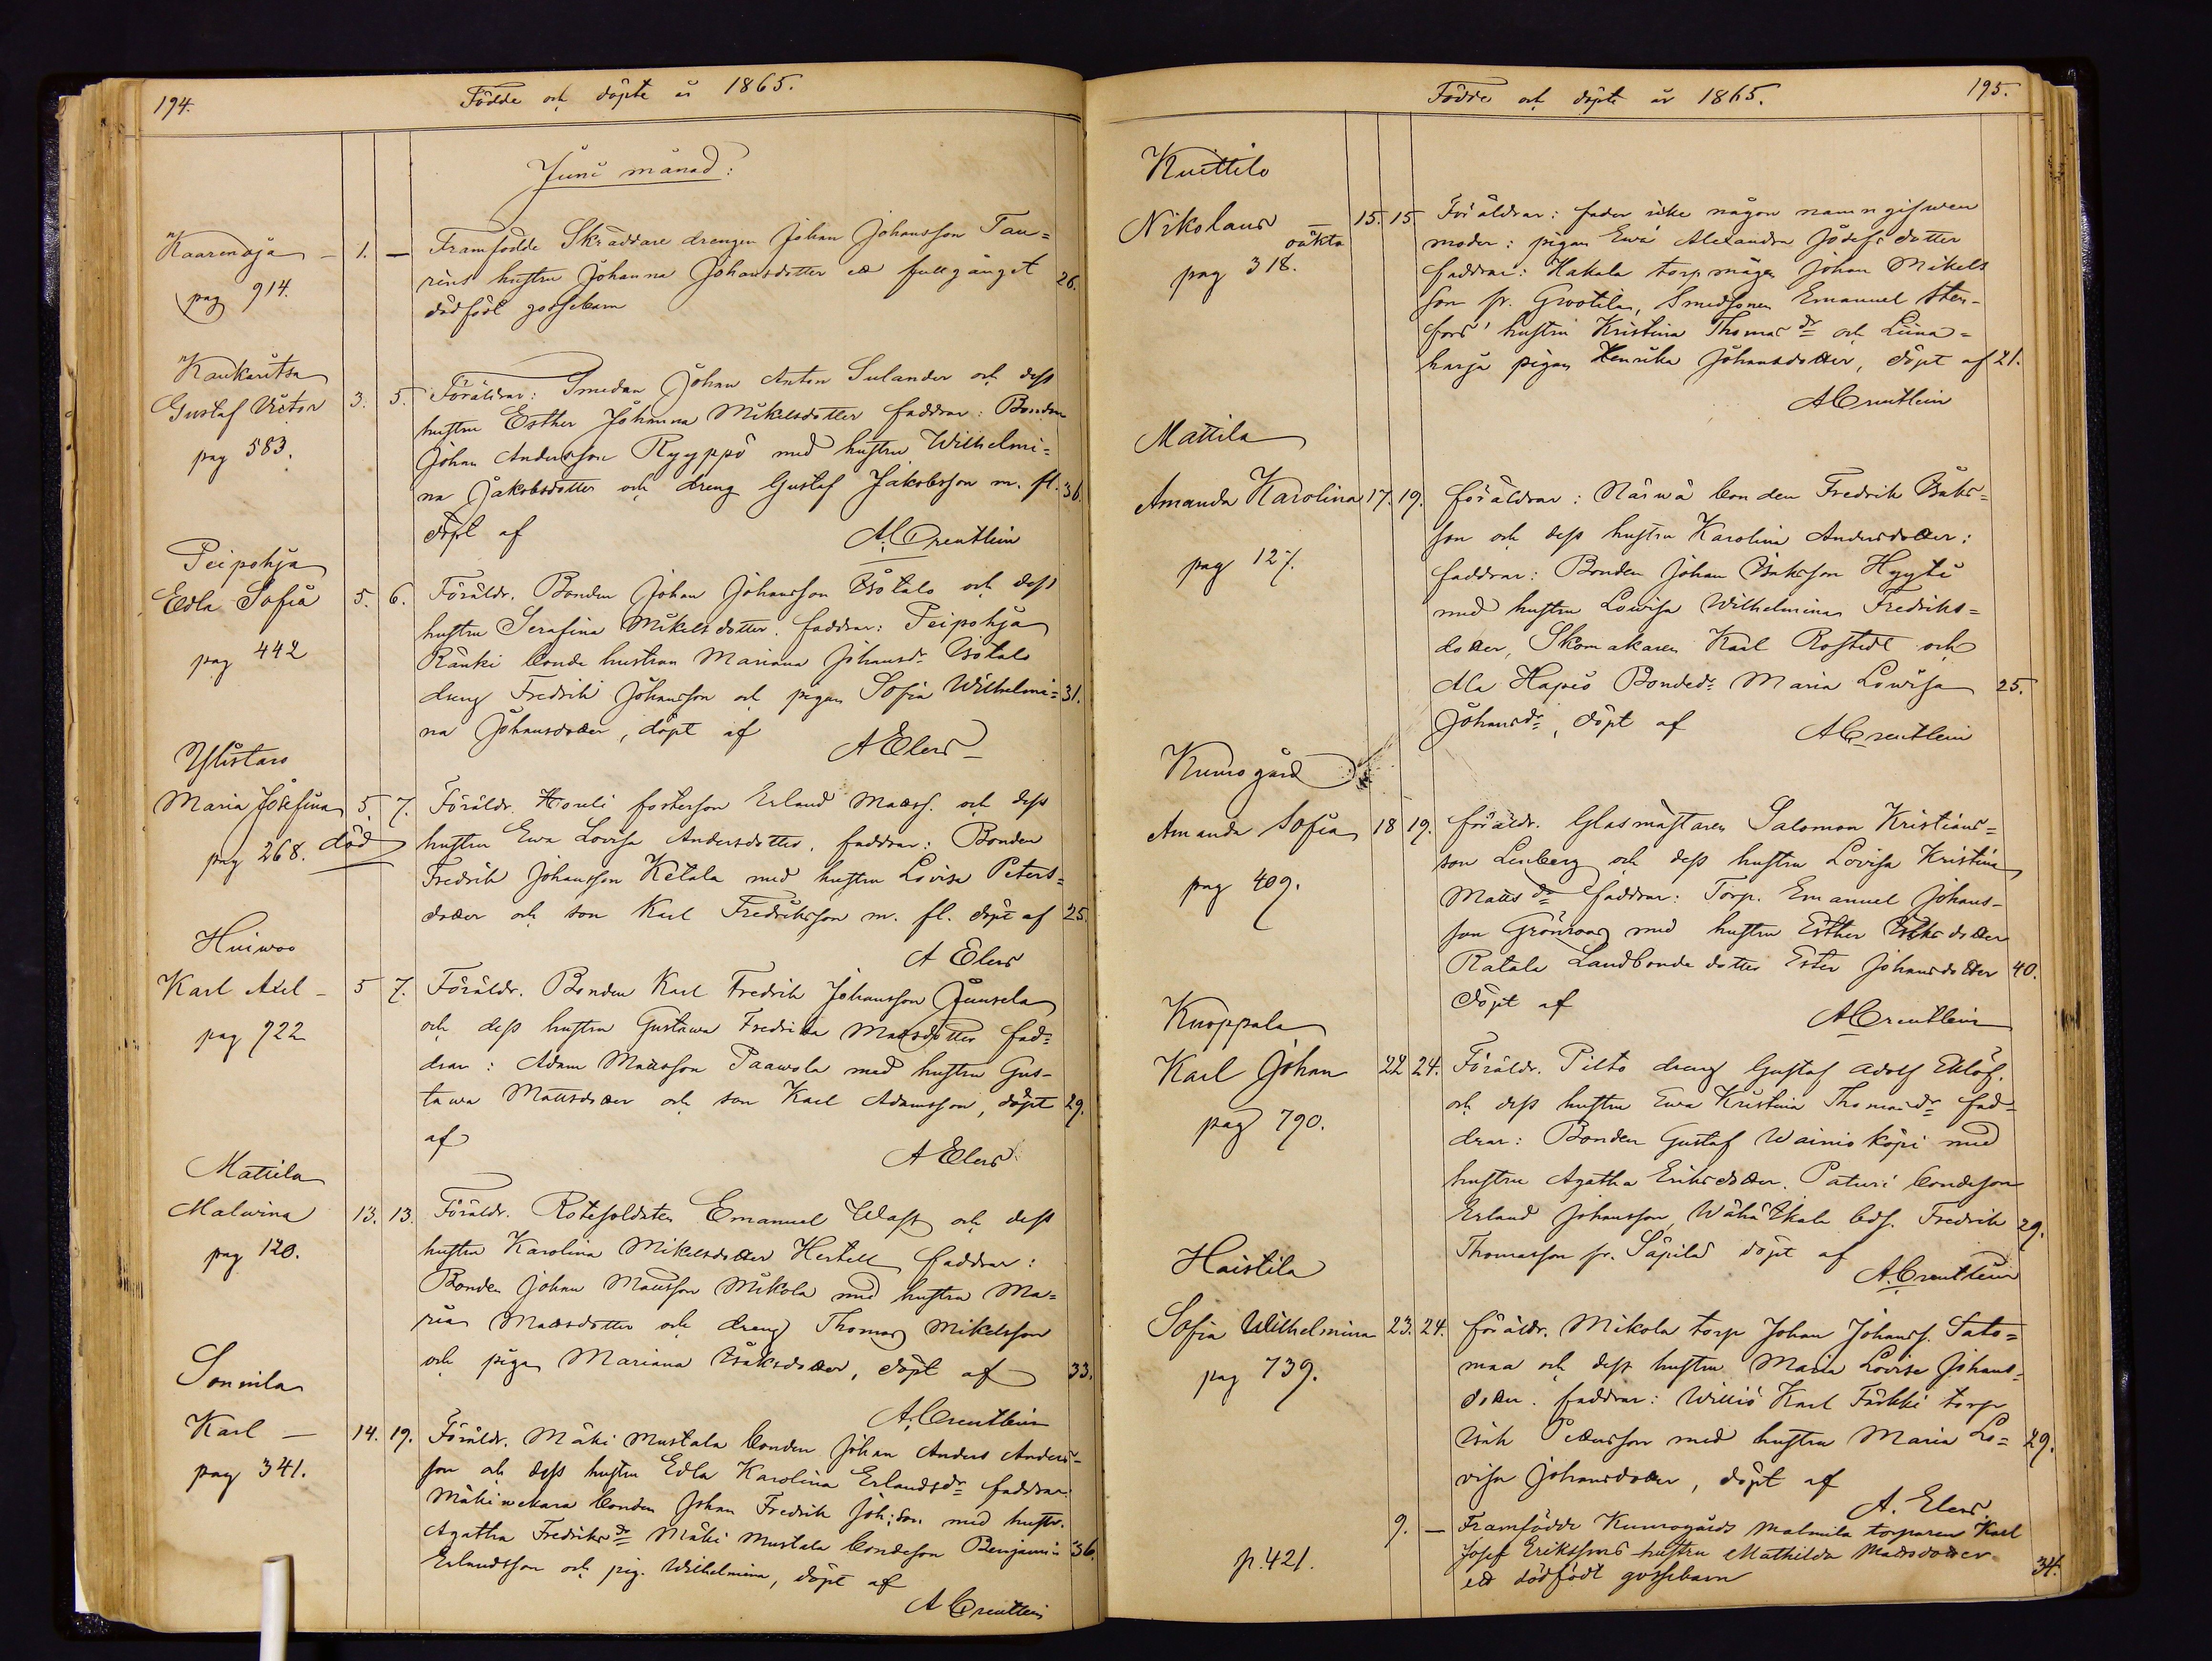 194.
Födde och döpte år 1865.
Juni månad:
Kaarenoja — 1. — Framfödde Skräddare drengen Johan Johansson Tau=
pag 914.
rens hustru Johanna Johansdotter ett fullgånget 26.
dödfödt gossebarn
Kaukaritsa
Gustaf Victor 3. 5. Föräldrar: Smeden Johan Anton Sulander och dess
hustru Esther Johanna Mikelsdotter faddrar: Bonden
pag 583.
Johan Andersson Ryyppö med hustru Wilhelmi=
na Jakobsdotter och dreng Gustaf Jakobsson m. fl. 36.
döpt af
A. Creutlein
Peipohja
Edla Sofia 5. 6. Föräldr. Bonden Johan Johansson Isotalo och dess
hustru Serafina Mikelsdotter. faddrar: Peipohja
pag 442
Ränki bonde hustrun Mariana Johansdr Isotalo
dreng Fredrik Johansson och pigan Sofia Wilhelmi= 31.
na Johansdotter, döpt af
A Elers
Ylistaro
Maria Josefina 5. 7. Föräldr. Houli fosterson Erland Mattss. och dess
pag 268. död
hustru Ewa Lovisa Andersdotter. faddrar: Bonden
Fredrik Johansson Ketala med hustru Lovisa Peters=
dotter och son Karl Fredriksson m. fl. döpt af 25.
A Elers
Huiwoo
Karl Axel — 5 7. Föräldr. Bonden Karl Fredrik Johansson Junsela
pag 922
och dess hustru Gustawa Fredrika Mattsdotter fad=
drar: Adam Mattsson Paawola med hustru Gus-
tawa Mattsdotter och son Karl Adamsson, döpt 29.
af
A Elers
Mattila
Malwina 13. 13. Föräldr. Rotesoldaten Emanuel Wass och dess
pag 120.
hustru Karolina Mikelsdotter Hertell faddrar:
Bonden Johan Mattsson Mikola med hustru Ma=
ria Mattsdotter och dreng Thomas Mikelsson
och pigan Mariana Isaksdotter, döpt af 33.
A. Creutlein
Sonnila
Karl — 14. 19. Föräldr. Mäki Mustala bonden Johan Anders Anders-
pag 341.
son och dess hustru Edla Karolina Erlandsdr faddrar:
Mäki bonden Johan Fredrik Joh:son med hustr.
Agatha Fredriksdr Mäki Mustala bondeson Benjamin 36.
Erlandsson och pig. Wilhelmina, döpt af
A Creutlein
Födde och döpte år 1865.
195.
Kuittilo
Nikolaus — 15. 15 Föräldrar: fader icke någon namngifwen
oäkta
moder: pigan Ewa Alexandra Josefsdotter
pag 318.
faddrar: Hakala torp mågen Johan Mikels
son fr. Grootila, Smedsonen Emanuel Sten-
fors' hustru Kristina Thomasdr och Liina-
harja pigan Henrika Johansdotter, döpt af 21.
A Creutlein
Mattila
Amanda Karolina 17. 19. föräldrar: Närwä bonden Fredrik Isaks=
son och dess hustru Karolina Andersdotter:
pag 127.
faddrar: Bonden Johan Isaksson Hyyti
med hustru Lowisa Wilhelmina Fredriks=
dotter, Skomakaren Karl Rostedt och
Ala Hapio Bondedr Maria Lowisa 25.
Johansdr, döpt af
A Creutlein
Kumogård
Amanda Sofia 18 19. föräldr. Glasmästaren Salomon Kristians=
son Lenberg och dess hustru Lovisa Kristina
pag 409.
Mattsdr faddrar: Torp. Emanuel Johans-
son Grönroos med hustru Esther Isaksdotter
Ratala Landbonde dotter Ester Johansdotter 40.
döpt af
A Creutlein
Kuoppala
Karl Johan 22 24. Föräldr. Pilto dreng Gustaf Adolf Eklöf.
och dess hustru Ewa Kristina Thomasdr fad=
pag 790.
drar: Bonden Gustaf Wainioköpi med
hustru Agatha Eriksdotter. Paturi bondeson
Erland Johansson, Wähä Ikala bds. Fredrik 29.
Thomasson fr. Säpilä döpt af
A. Creutlein
Haistila
Sofia Wilhelmina 23. 24. föräldr. Mikola torp Johan Johanss. Sato=
maa och dess hustru Maria Lovisa Johans=
pag 739.
dotter. faddrar: Williö Karl Färkki torp
Isak Pettersson med hustru Maria Lo= 29.
visa Johansdotter, döpt af
A. Elers
9. — Framfödde Kumogårds Malmila torparen Karl
Josef Erikssons hustru Mathilda Mattsdotter
p. 421.
ett dödfödt gossebarn 34.